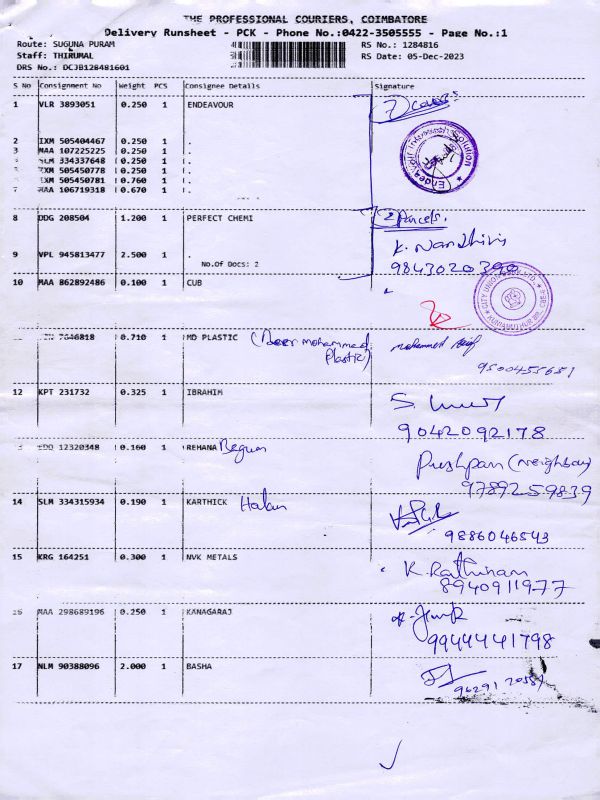 THE PROFESSIONAL COURIERS, COIMBATORE
Delivery Runsheet - PCK - Phone No.:0422-3505555 - Page No.:1
Route: SUGUNA PURAM RS No.: 1284816
Staff: THIRUMAL RS Date: 05-Dec-2023
DRS No.: DCJB128481601
S No Consignment No Weight PCS Consignee Details Signature
1 VLR 3893051 0.250 1 ENDEAVOUR 7 covers
2 IXM 505404467 0.250 1 .
3 MAA 107225225 0.250 1 .
SLM 334337648 0.250 1 .
IXM 505450778 0.250 1 .
IXM 505450781 0.760 1 .
7 MAA 106719318 0.670 1 .
8 DDG 208504 1.200 1 PERFECT CHEMI 2 Parcels.
K. Nandhini
9 VPL 945813477 2.500 1 .
No.Of Docs: 2 9843020390
10 MAA 862892486 0.100 1 CUB
7646818 0.710 1 MD PLASTIC (Noor mohammed Plastic) mohammed
9500455651
12 KPT 231732 0.325 1 IBRAHIM
9042092178
EDD 12320348 0.160 1 REHANA Begum Pushpan (neighbour)
9789259839
14 SLM 334315934 0.190 1 KARTHICK
9886046543
15 KRG 164251 0.300 1 NVK METALS K. Rathinam
8940911977
16 MAA 298689196 0.250 1 KANAGARAJ
9944441798
17 NLM 90388096 2.000 1 BASHA